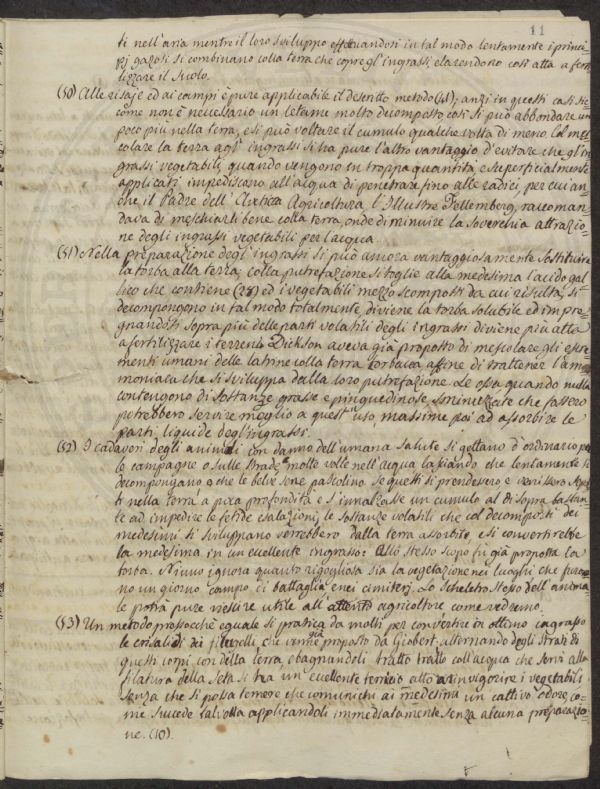 11
ti nell'aria mentre il loro sviluppo effettuandosi in tal modo lentamente i princi
pj gazosi si combinano colla terra che copre gl'ingrassi, e la rendono così atta a ferti
lizzare il suolo.
(50) Alle risaje ed ai campi è pure applicabile il descritto metodo (48); anzi in questi casi sic
come non è necessario un letame molto decomposto, così si può abbondare un
poco più nella terra, e si può voltare il cumulo qualche volta di meno. Col mes
colare la terra agl'ingrassi si ha pure l'altro vantaggio d'evitare che gl'in
grassi vegetabili, quando vengono in troppa quantità, e superficialmente
applicati impediscano all'acqua di penetrare fino alle radici, per cui an
che il Padre dell'Antica Agricoltura l'Illustre Fellemberg, racoman
dava di meschiarli bene colla terra, onde diminuire la soverchia attrazio
ne degli ingrassi vegetabili per l'acqua.
(51) Nella preparazione degl'ingrassi si può ancora vantaggiosamente sostituire
la torba alla terra; colla putrefazione si toglie alla medesima l'acido gal
lico che contiene (28) ed i vegetabili mezzo scomposti da cui risulta, si
decompongono in tal modo totalmente, diviene la torba solubile ed impre
gnandosi sopra più delle parti volatili degli ingrassi diviene più atta
a fertilizzare i terreni. Dickson aveva già proposto di mescolare gli escre
menti umani delle latrine colla terra torbacea affine di trattener l'am
moniaca che si sviluppa dalla loro putrefazione. Le ossa quando nulla
contengono di sostanze grasse e pinguedinose, sminuzzate che fossero
potrebbero servire meglio a quest'uso, massime poi ad assorbire le
parti liquide degl'ingrassi.
(52) I cadaveri degli animali con danno dell'umana salute si gettano d'ordinario per
le campagne o sulle strade, molte volte nell'acqua lasciando che lentamente si
decompongano o che le belve sene pascolino. Se questi si prendessero, e venissero sepol
ti nella terra a poca profondità e s'innalzasse un cumulo al di sopra bastan
te ad impedire le fetide esalazioni, le sostanze volatili che col decomporsi dei
medesimi si sviluppano verrebbero dalla terra assorbite, e si convertirebbe
la medesima in un eccellente ingrasso: Allo stesso scopo fu già proposta la
torba. Niuno ignora quanto rigogliosa sia la vegetazione nei luoghi che furo
no un giorno campo di battaglia, e nei cimiterj. Lo scheletro stesso dell'anima
le potrà pure riescire utile all'attento agricoltore come vedremo.
(53) Un metodo pressocchè eguale si pratica da molti per convertire in ottimo ingrasso
le crisalidi dei filugelli che venne già proposto da Giobert, alternando degli strati di
questi corpi con della terra, e bagnandoli tratto tratto coll'acqua che servì alla
filatura della seta si ha un eccellente terriccio atto a rinvigorire i vegetabili
senza che si possa temere che comunichi ai medesimi un cattivo odore, co
me succede talvolta applicandoli immediatamente senza alcuna preparazio
ne. (10).